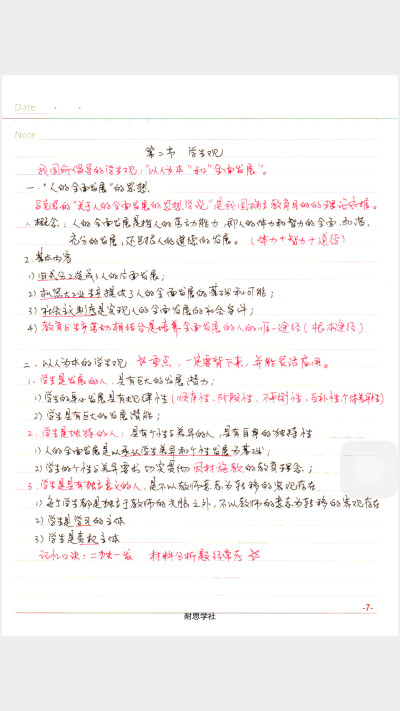 Date . .
Note
第二节 学生观
我国所倡导的学生观："以人为本"和"全面发展"。
一."人的全面发展"的思想
马克思的"关于人的全面发展的思想学说"是我国确立教育目的的理论依据。
1.概念：人的全面发展是指人的劳动能力,即人的体力和智力的全面、和谐、
充分的发展,还包括人的道德的发展。(体力+智力+道德)
2.基本内容
1)旧式分工造成了人的片面发展;
2)机器大工业生产提供了人的全面发展的基础和可能;
3)社会主义制度是实现人的全面发展的社会条件;
4)教育与生产劳动相结合是培养全面发展的人的唯一途径(根本途径)
二.以人为本的学生观 重点,一定要背下来,并能灵活应用。
1.学生是发展的人,具有巨大的发展潜力;
1)学生的身心发展具有规律性(顺序性、阶段性、不平衡性、互补性、个体差异性)
2)学生具有巨大的发展潜能;
2.学生是独特的人:具有个性与差异的人,具有自身的独特性
1)人的全面发展是以承认学生差异和个性发展为基础;
2)学生的个性与差异要求切实贯彻因材施教的教育理念;
3.学生是具有独立意义的人,是不以教师意志为转移的客观存在
1)每个学生都是独立于教师的头脑之外,不以教师的意志为转移的客观存在
2)学生是学习的主体
3)学生是责权主体
记忆口诀:二独一发 材料分析题经常考
-7-
耐思学社